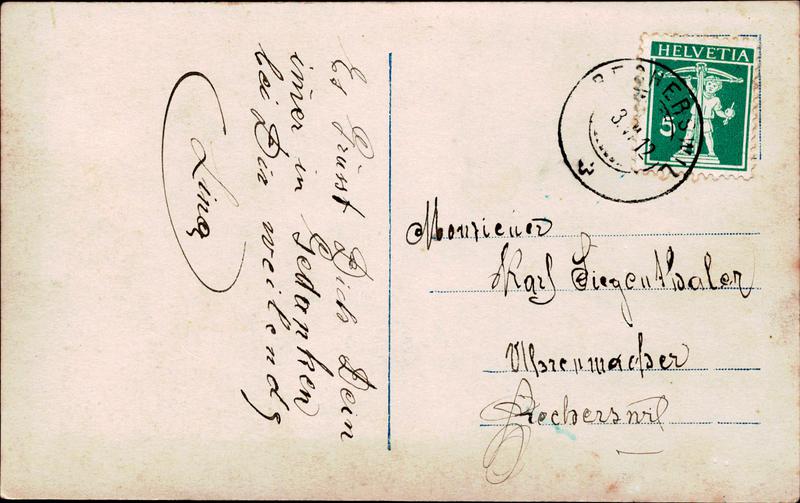 Es Grüsst Dich Dein
imer in Gedanken
bei Dir weilend
Lina
HELVETIA
5
Monsieur
Karl Siegenthaler
Uhrenmacher